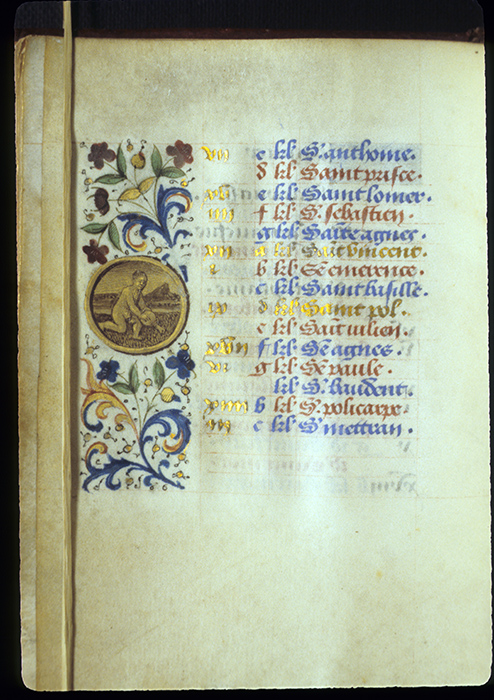 vii c kl S. anthoine.
δ kl Saint prisce.
xv e kl Saint lomer.
iiii f kl S. sebastien.
g kl Saīte agnes.
xii a kl Saīt vincent.
i b kl Sē emerence.
c kl Saint basille.
ix d kl Saint pol.
e kl Saīt iulien.
xvii f kl Sē agnes.
vi g kl Sē paule.
kl S. baudent.
xiiii b kl S. policarpe
iii c kl S. mettran.